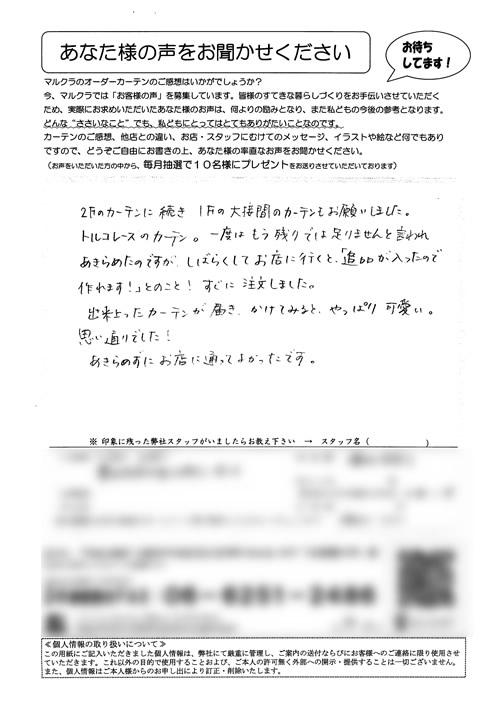 あなた様の声をお聞かせください
お待ち
してます！
マルクラのオーダーカーテンのご感想はいかがでしょうか？
今、マルクラでは「お客様の声」を募集しています。皆様のすてきな暮らしづくりをお手伝いさせていただく
ため、実際にお求めいただいたあなた様のお声は、何よりの励みとなり、また私どもの今後の参考となります。
どんな“ささいなこと”でも、私どもにとってはとてもありがたいことなのです。
カーテンのご感想、他店との違い、お店・スタッフにむけてのメッセージ、イラストや絵など何でもあり
ですので、どうぞご自由にお書きの上、あなた様の率直なお声をお聞かせください。
（お声をいただいた方の中から、毎月抽選で１０名様にプレゼントをお送りさせていただいております）
2Fのカーテンに続き 1Fの大接間のカーテンもお願いしました。
トルコレースのカーテン。一度はもう残りでは足りませんと言われ
あきらめたのですが、しばらくしてお店に行くと、「追加が入ったので
作れます！」とのこと！ すぐに注文しました。
出来上ったカーテンが届き、かけてみると、やっぱり可愛い。
思い通りでした！
あきらめずにお店に通ってよかったです。
※ 印象に残った弊社スタッフがいましたらお教え下さい → スタッフ名（ ）
06-6251-2486
≪個人情報の取り扱いについて≫
この用紙にご記入いただきました個人情報は、弊社にて厳重に管理し、ご案内の送付ならびにお客様へのご連絡に限り使用させ
ていただきます。これ以外の目的で使用することおよび、ご本人の許可無く外部への開示・提供することは一切ございません。
また、個人情報はご本人様からのお申し出により訂正・削除いたします。